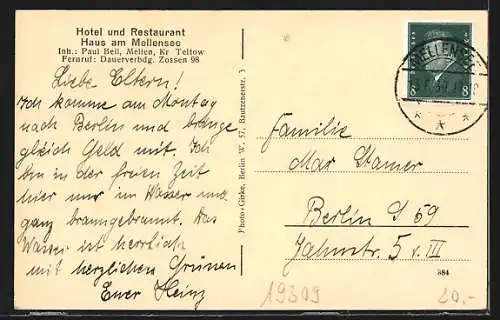 Hotel und Restaurant
Haus am Mellensee
Inh.: Paul Beil, Mellen, Kr Teltow
Fernruf: Dauerverbdg. Zossen 98
Liebe Eltern!
Ich komme am Montag
nach Berlin und bringe
gleich Geld mit. Ich
bin in der freien Zeit
hier nur im Wasser und
ganz braungebrannt. Das
Wasser ist herrlich
mit herzlichen Grüssen
Euer Heinz
Photo-Girke, Berlin W. 57, Bautzenerstr. 3
8 8
MELLENSEE
Familie
Max Stamer
Berlin S 59
Jahnstr. 5 v. III
884
19309
20.-